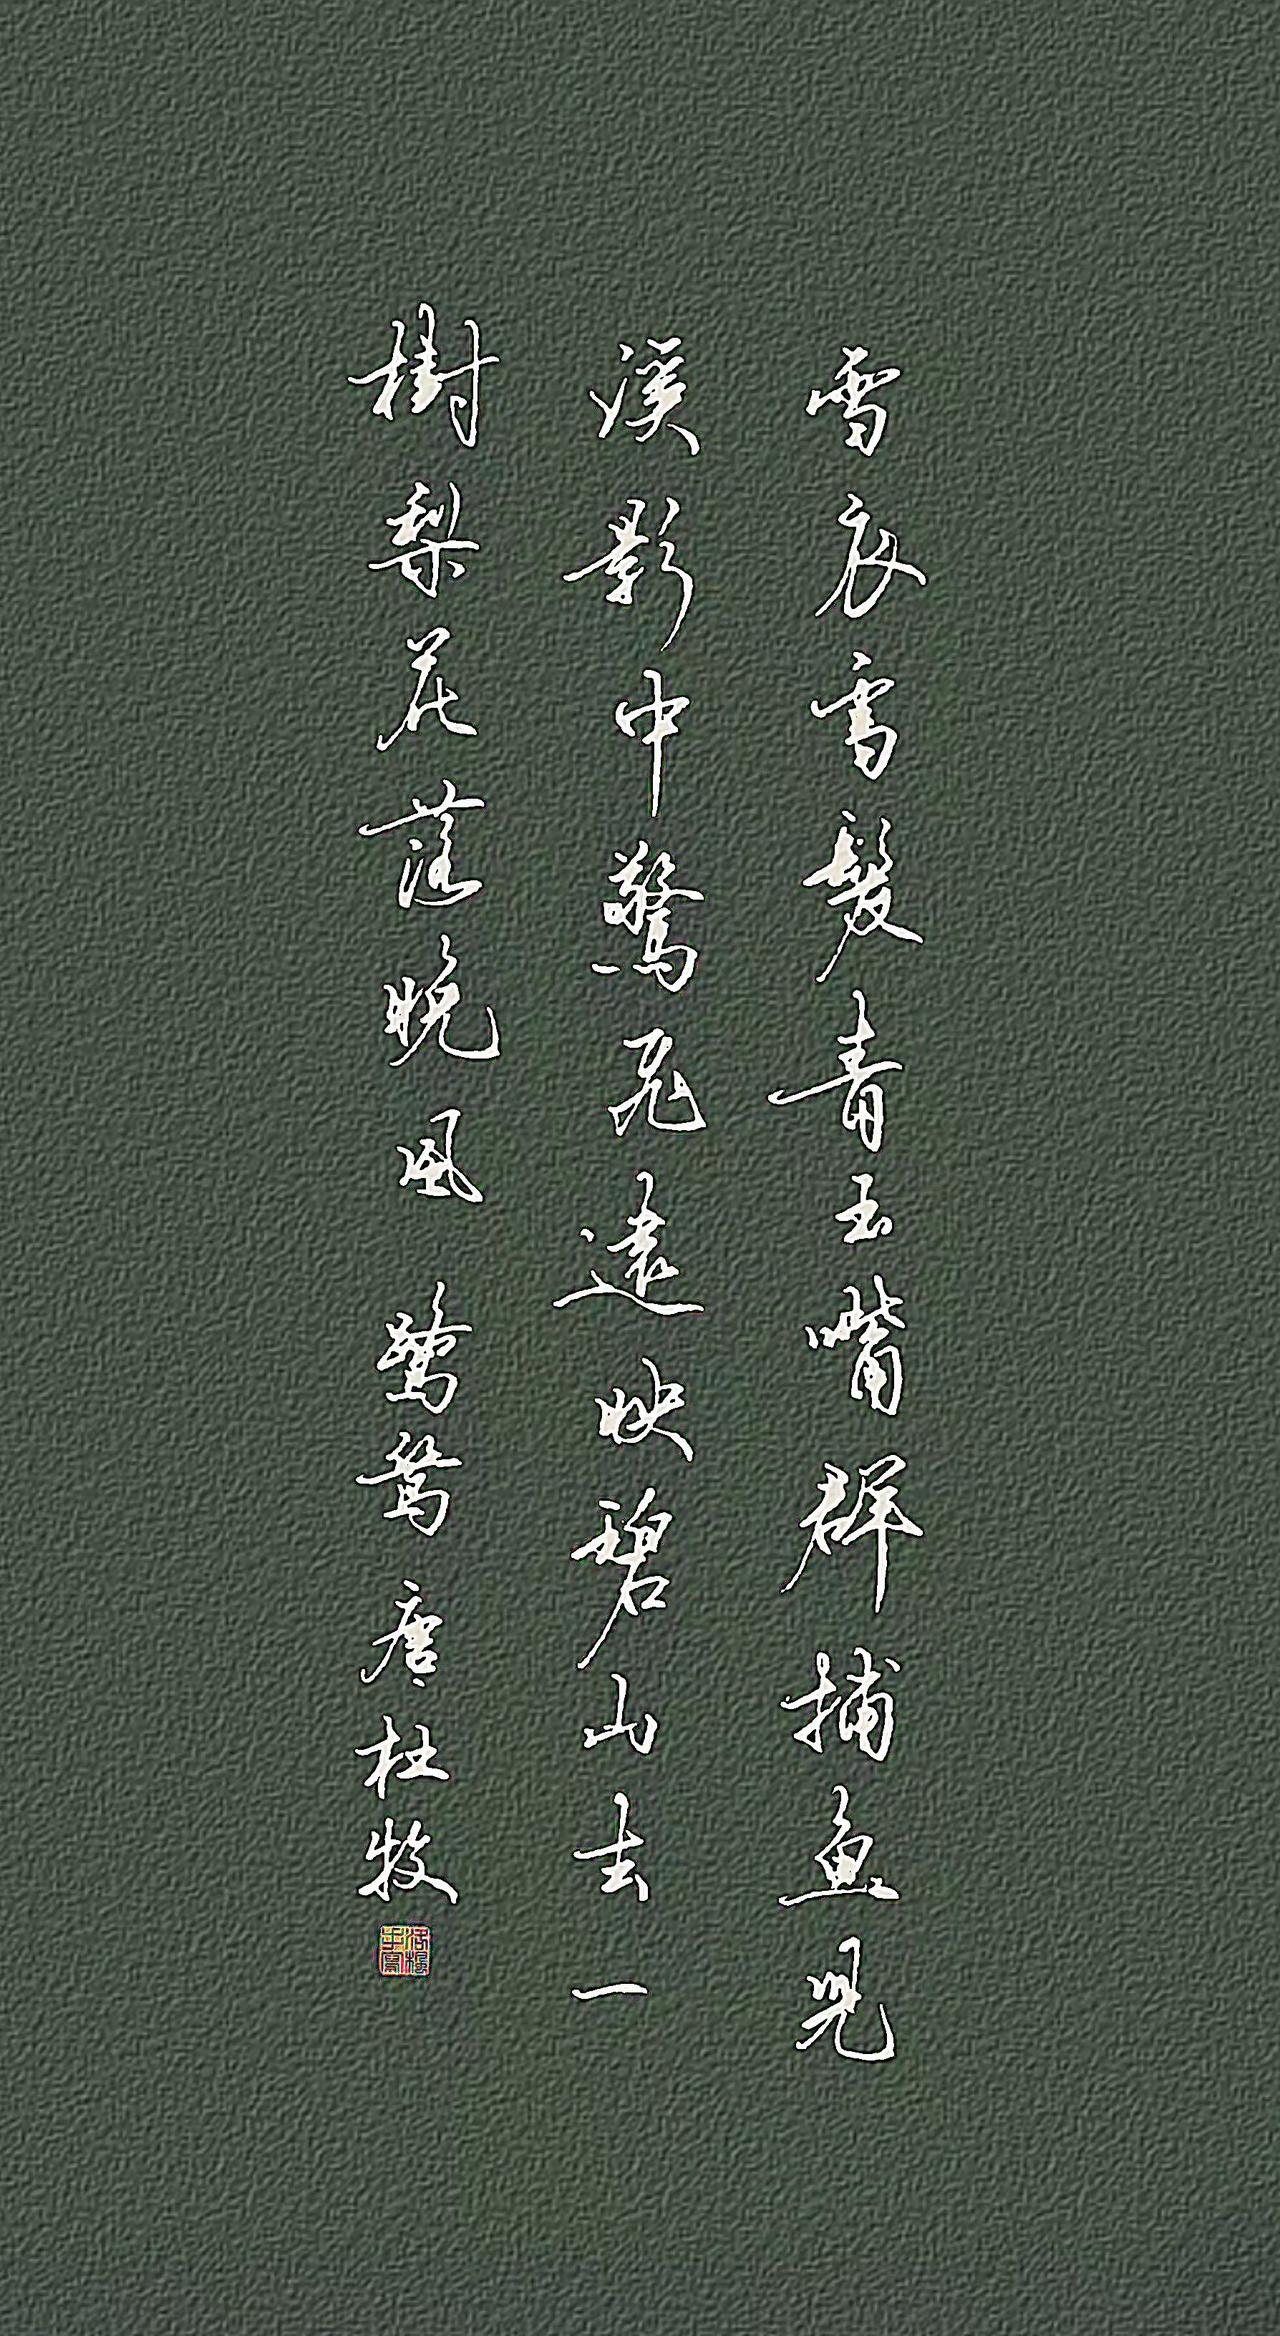 雪衣雪髮青玉嘴群捕魚兒
溪影中驚飛遠映碧山去一
樹梨花落晚風 鷺鷥 唐杜牧